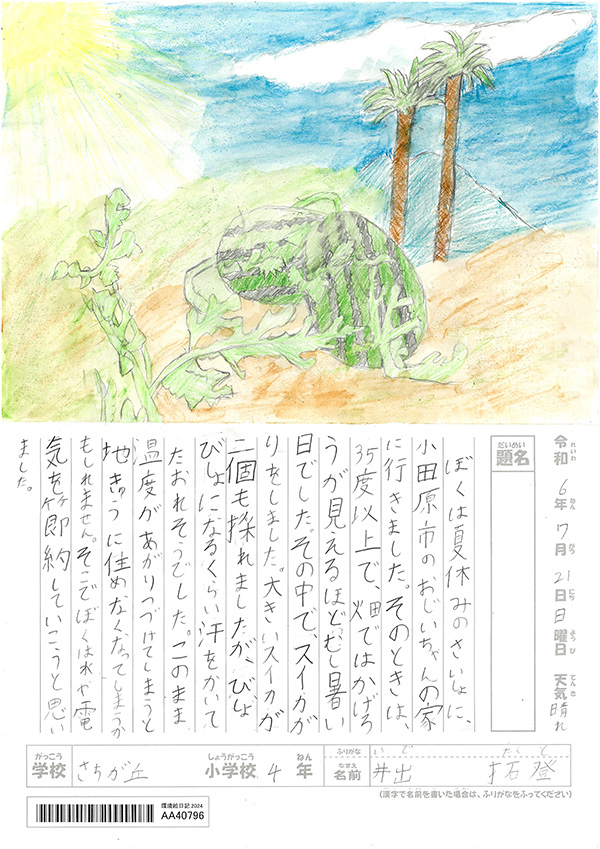 令和6年7月21日日曜日 天気 晴れ
れいわ ねん がつ にち ようび てんき
だいめい
題名
ぼくは夏休みのさいしょに、
小田原市のおじいちゃんの家
に行きました。そのときは、
35度以上で、畑ではかげろ
うが見えるほど、むし暑い
日でした。その中で、スイカが
りをしました。大きいスイカが
二個も採れましたが、びしょ
びしょになるくらい汗をかいて
たおれそうでした。このまま
温度があがりつづけてしまうと
地きゅうに住めなくなってしまうか
もしれません。そこでぼくは水や電
気を節約していこうと思い
ました。
がっこう しょうがっこう ねん ふりがな いで たくと
学校 さちが丘 小学校 4年 名前 井出 拓登
なまえ
(漢字で名前を書いた場合は、ふりがなをふってください)
環境絵日記2024
AA40796